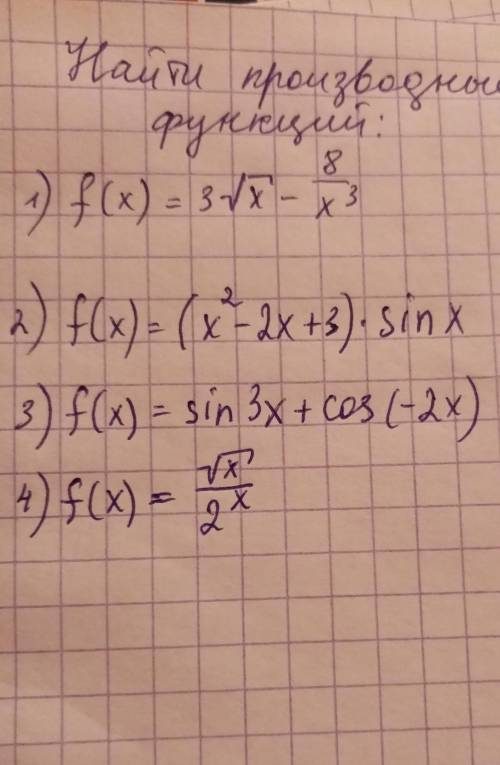 Найти производные
функций:
1) f(x) = 3√x - 8/x³
2) f(x) = (x² - 2x + 3) · sin x
3) f(x) = sin 3x + cos (-2x)
4) f(x) = √x/2ˣ